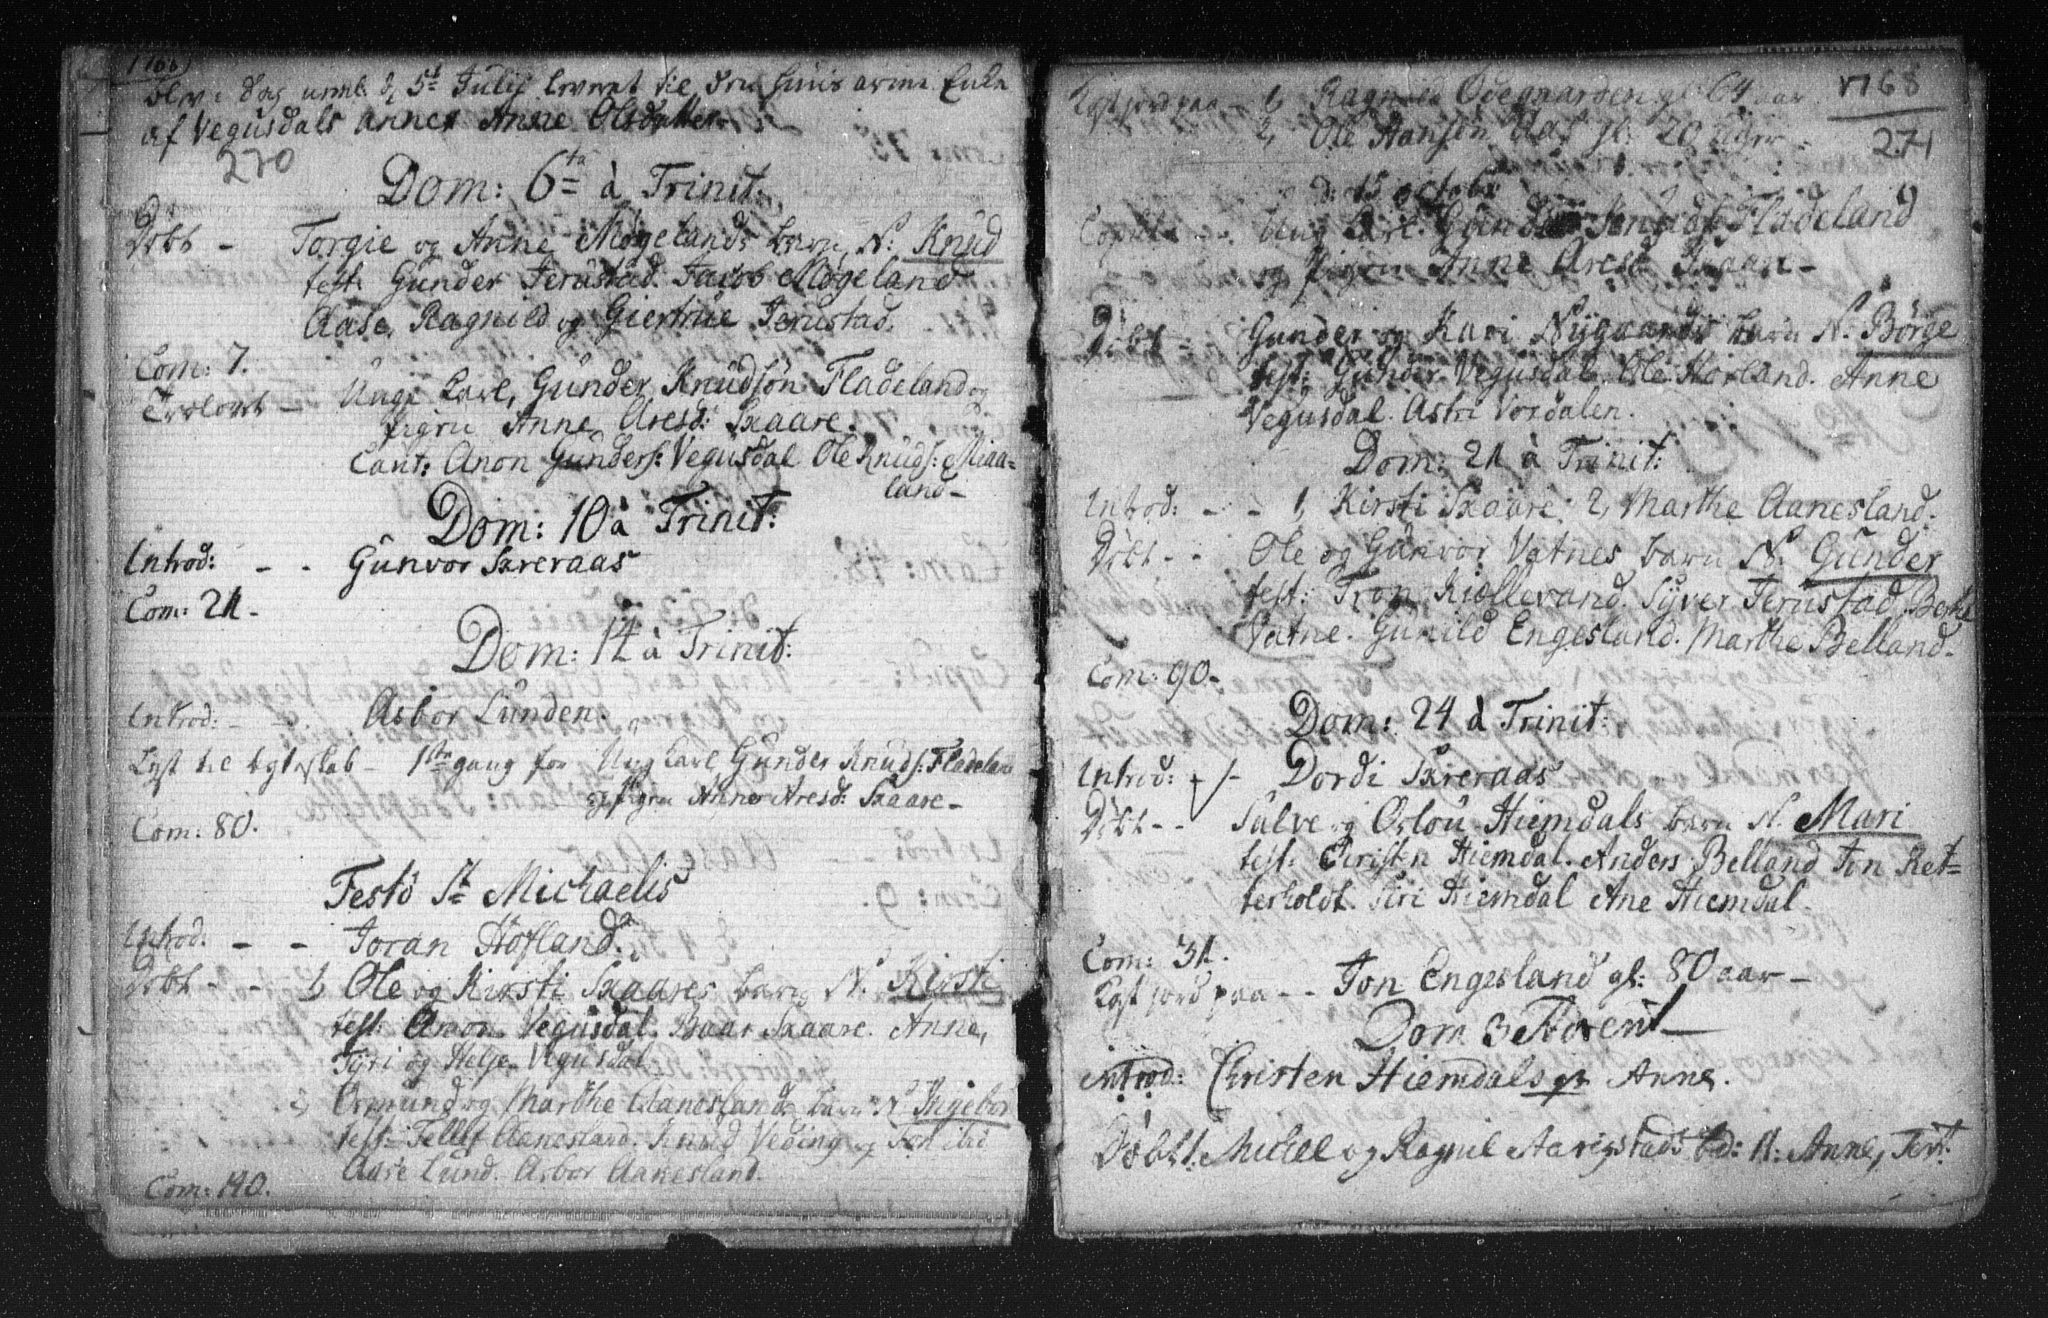 1768
blev i dag neml: d. 5t Julij leveret til den huus arme Enke
af Vegusdals annex Anne Olsdatter
270
Dom: 6ta à Trinit:
Döbt - Torgie og Anne Mögelands barn N: Knud
test: Gunder Ierustad. Jacob Mögeland
Aase, Ragnild og Giertrue Ierustad.
Com: 7.
Trolovet - Ung Carl, Gunder Knudsön Fladeland og
pigen Anne Aresd: Skaare.
Caut: Anon Gunders: Vegusdal Ole Knuds: Miaa=
land -
Dom: 10 à Trinit:
Introd: - - Gunvor Skreraas
Com: 21 -
Dom: 14 à Trinit:
Introd: - - Asbor Lunden.
Lyst til Egteskab - 1ste gang for Ung Carl Gunder Knuds: Fladeland
og pigen Anne Aresd: Skaare -
Com: 80.
Festo St Michaelis
Introd: - - Joran Hofland.
Döbt - - 1, Ole og Kirsti Skaares barn N. Kirsti
test: Anon Vegusdal. Baar Skaare. Anne,
Tyri og Helje Vegusdal
2, Ormund og Marthe Aanesland barn N. Ingebor
test: Tellef Aanesland. Knud Veding og
Aase Lund. Asbor Aanesland.
Com: 140.
1768
271
Kast jord paa - 1, Ragnild Ödegaarden gl: 64 aar
2, Ole Hansen Aas gl: 20 uger
d: 15 octobr
Copul: - - Ung Carl Gunder Knuds: Fladeland
og pigen Anne Aresd Skaare -
Döbt - Gunder og Kari Nygaards barn N. Börge
test: Gunder Vegusdal. Ole Horland. Anne
Vegusdal. Astri Vordalen.
Dom: 21 à Trinit:
Introd: - - 1, Kirsti Skaare 2, Marthe Aanesland.
Döbt - - Ole og Gunvor Vatnes barn N. Gunder
test: Tron Kiöllevand. Syver Ierustad
Vatne. Gunild Engesland. Marthe Belland -
Com: 90 -
Dom: 24 à Trinit:
Introd: - Dordi Skreraas
Döbt - - Salve og Oslou Hiemdals barn N. Mari
test: Christen Hiemdal. Anders Belland Jon Ret=
terholdt. Siri Hiemdal Ane Hiemdal.
Com: 31.
Kast jord paa - - Jon Engesland gl: 80 aar -
Dom 3 Advent
Introd: Christen Hiemdals qv Anne.
Döbt: Michel og Ragnil Aarigstads bd: N: Anne, Test: